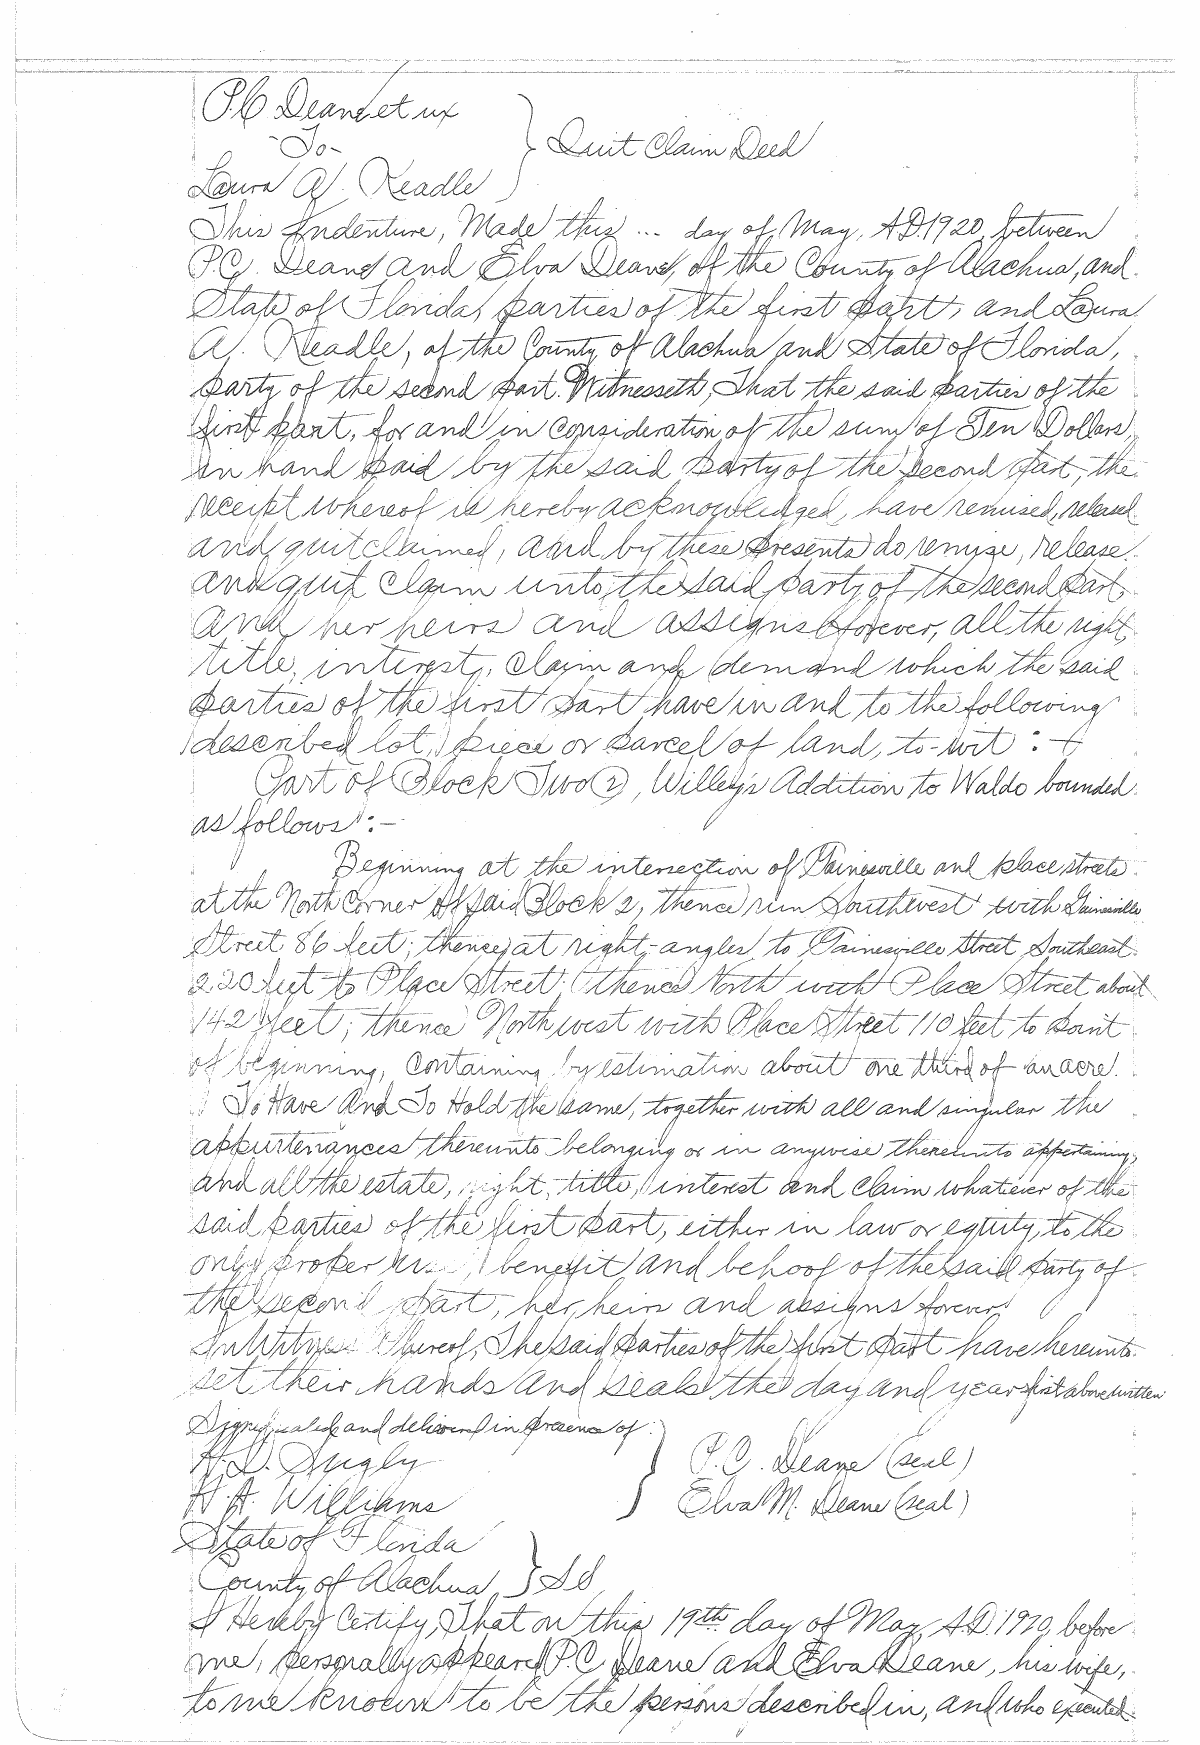 P.C. Deane et ux
-To-
Quit Claim Deed
Laura A. Keadle
This Indenture, Made this ... day of May, A.D. 1920, between
P.C. Deane and Elva Deane, of the County of Alachua, and
State of Florida, parties of the first part, and Laura
A. Keadle, of the County of Alachua and State of Florida,
party of the second part. Witnesseth, That the said parties of the
first part, for and in consideration of the sum of Ten Dollars,
in hand paid by the said party of the second part, the
receipt whereof is hereby acknowledged, have remised, released
and quitclaimed, and by these presents do remise, release
and quit claim unto the said party of the second part
and her heirs and assigns forever, all the right,
title, interest, claim and demand which the said
parties of the first part have in and to the following
described lot, piece or parcel of land, to-wit :-
Part of Block Two (2), Willey's Addition to Waldo bounded
as follows :-
Beginning at the intersection of Gainesville and place streets
at the North Corner of said Block 2, thence run Southwest with Gainesville
Street 86 feet; thence at right-angles to Gainesville Street Southeast
220 feet to Place Street; thence North with Place Street about
142 feet; thence Northwest with Place Street 110 feet to point
of beginning, containing by estimation about one third of an acre.
To Have And To Hold the same, together with all and singular the
appurtenances thereunto belonging or in anywise thereunto appertaining,
and all the estate, right, title, interest and claim whatever of the
said parties of the first part, either in law or equity, to the
only proper use, benefit and behoof of the said party of
the second part, her heirs and assigns forever.
In Witness Whereof, The said parties of the first part have hereunto
set their hands and seals the day and year first above written
Signed, sealed and delivered in presence of:
P.C. Deane (seal)
H. A. Williams
Elva M. Deane (seal)
State of Florida
County of Alachua } SS
I Hereby Certify, That on this 19th day of May, A.D. 1920, before
me, personally appeared P.C. Deane and Elva Deane, his wife,
to me known to be the persons described in, and who executed